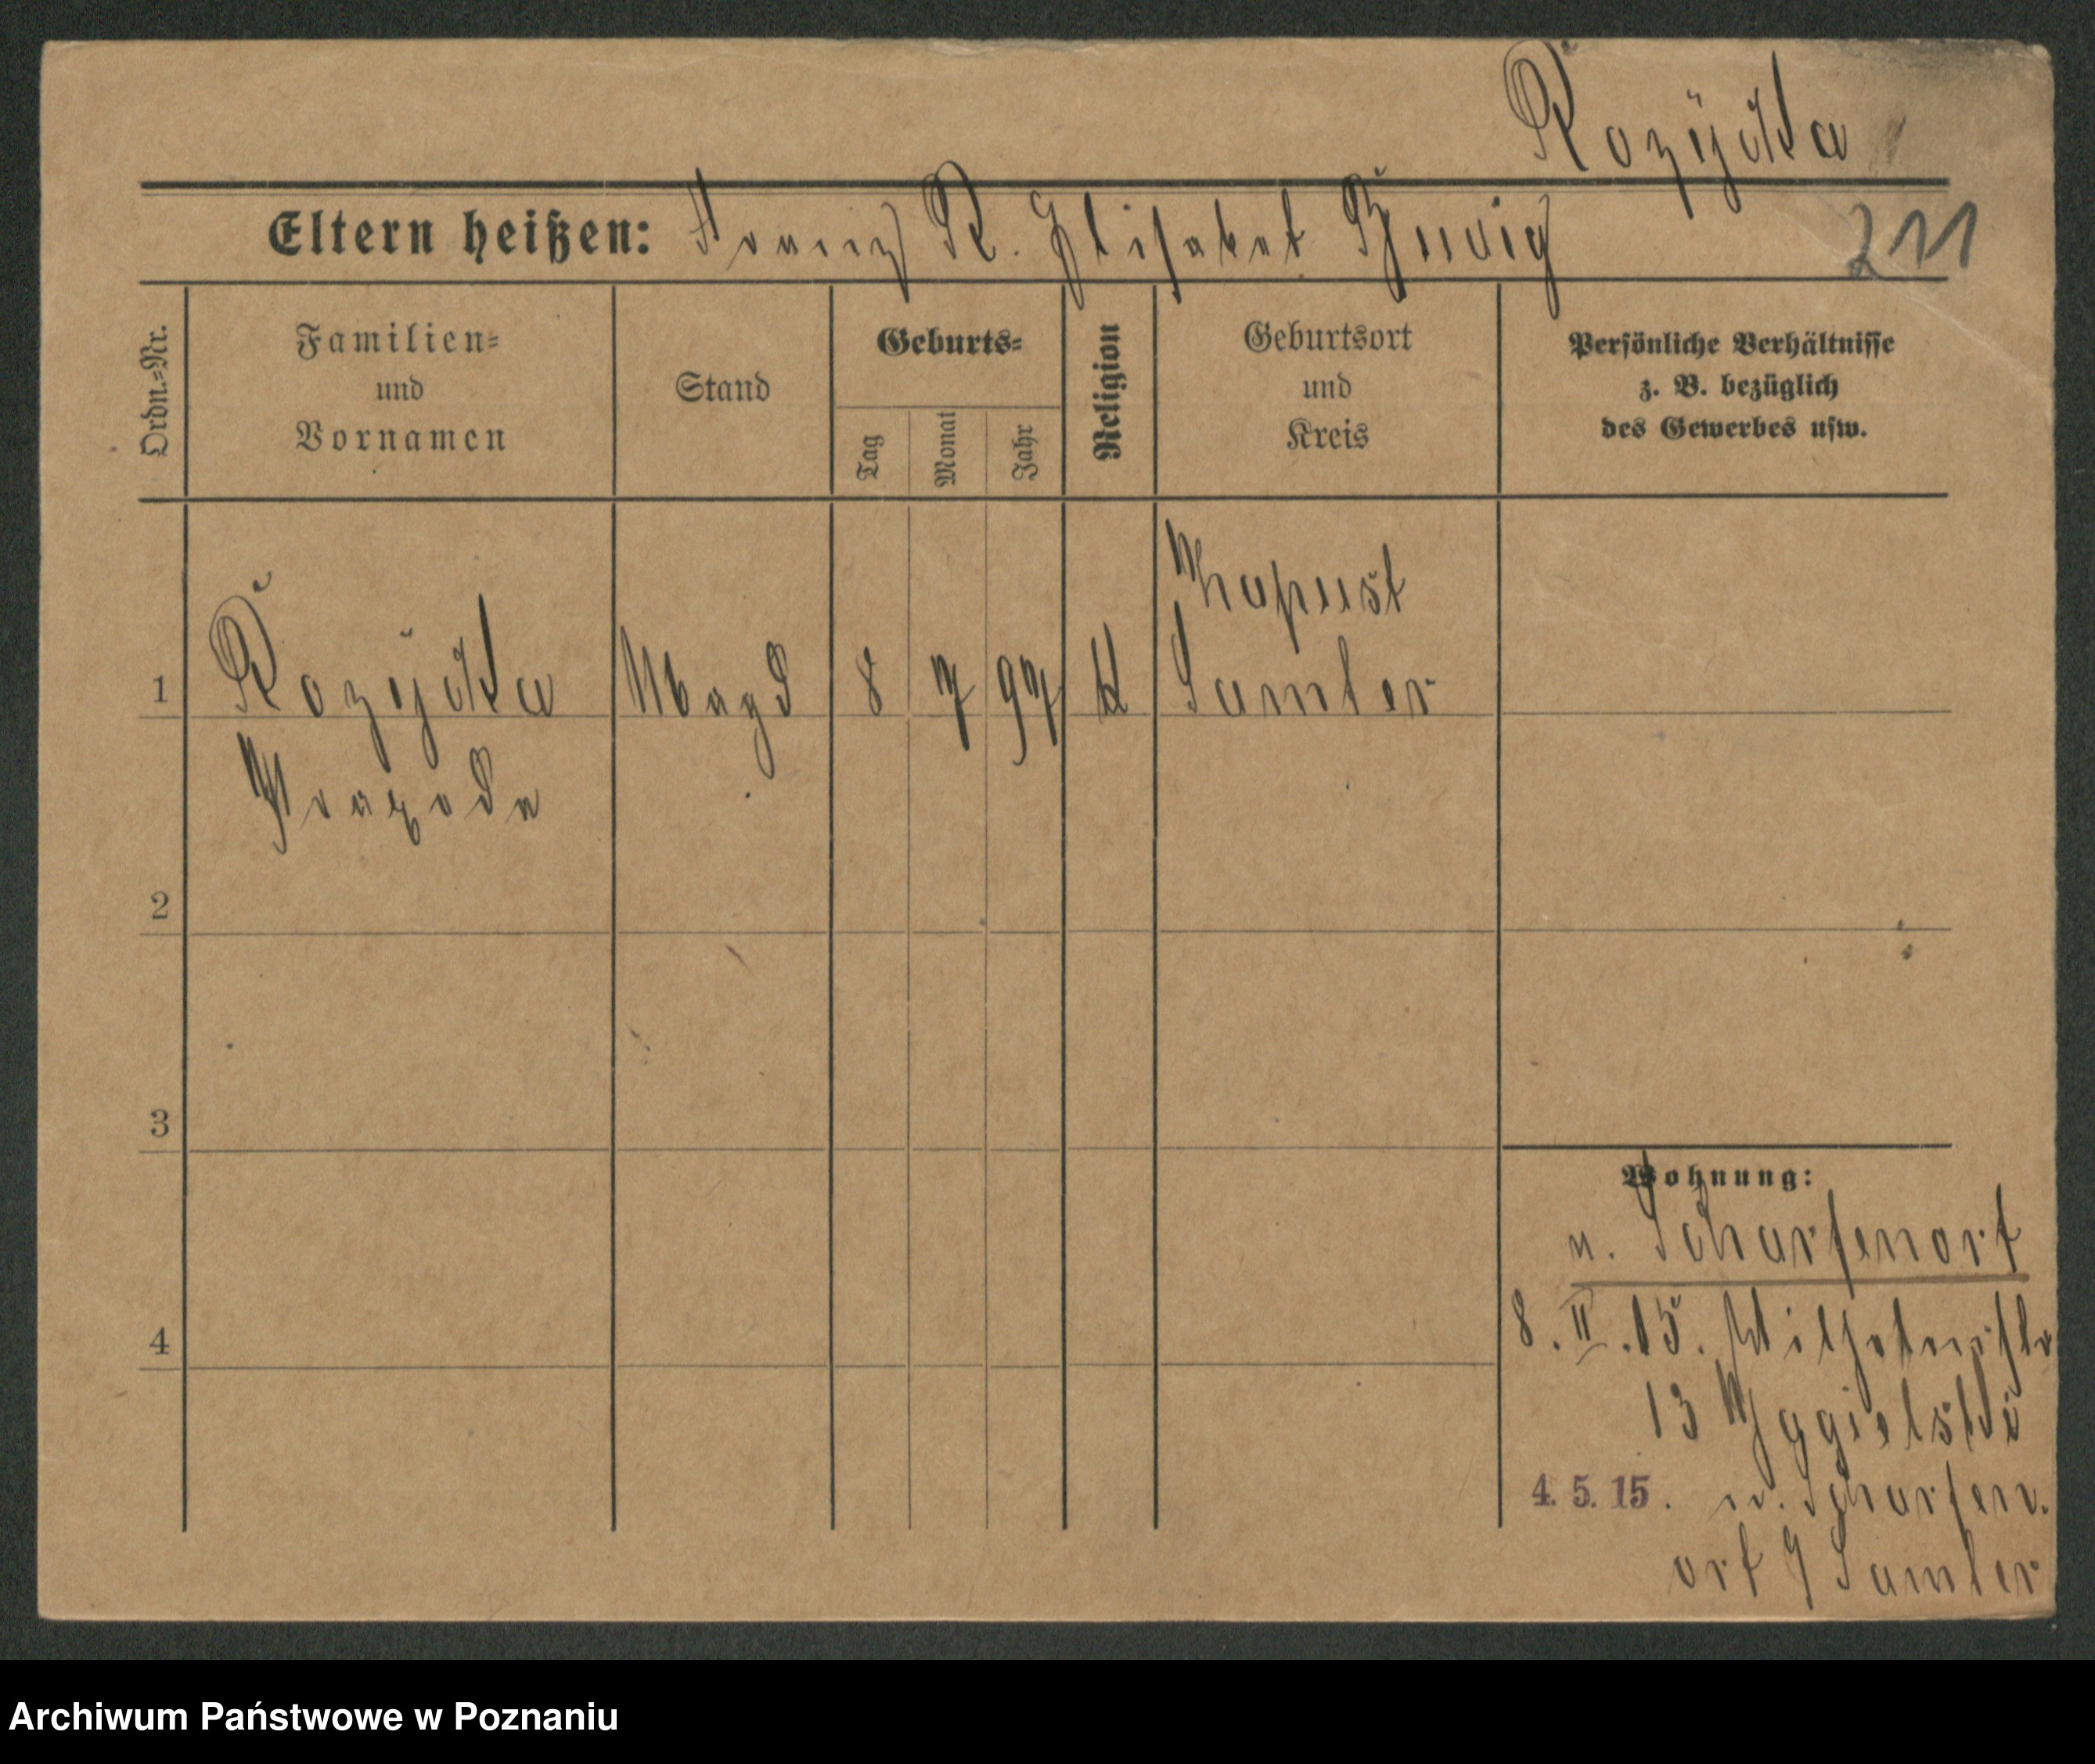 Rozÿcka
Eltern heißen: Franz R. Elisabet
211
Ordn.=Nr.
Familien=
und
Vornamen
Stand
Geburts=
Tag
Monat
Jahr
Religion
Geburtsort
und
Kreis
Persönliche Verhältnisse
z. B. bezüglich
des Gewerbes usw.
Kapust
1 Rozÿcka Magd 8 7 97 K Samter
Praxeda
2
3
4
Wohnung:
n. Scharfenort
8. II. 15. Wilhelmstr
13 Jagielski
4. 5. 15. n. Scharfen
ort Samter
Archiwum Państwowe w Poznaniu